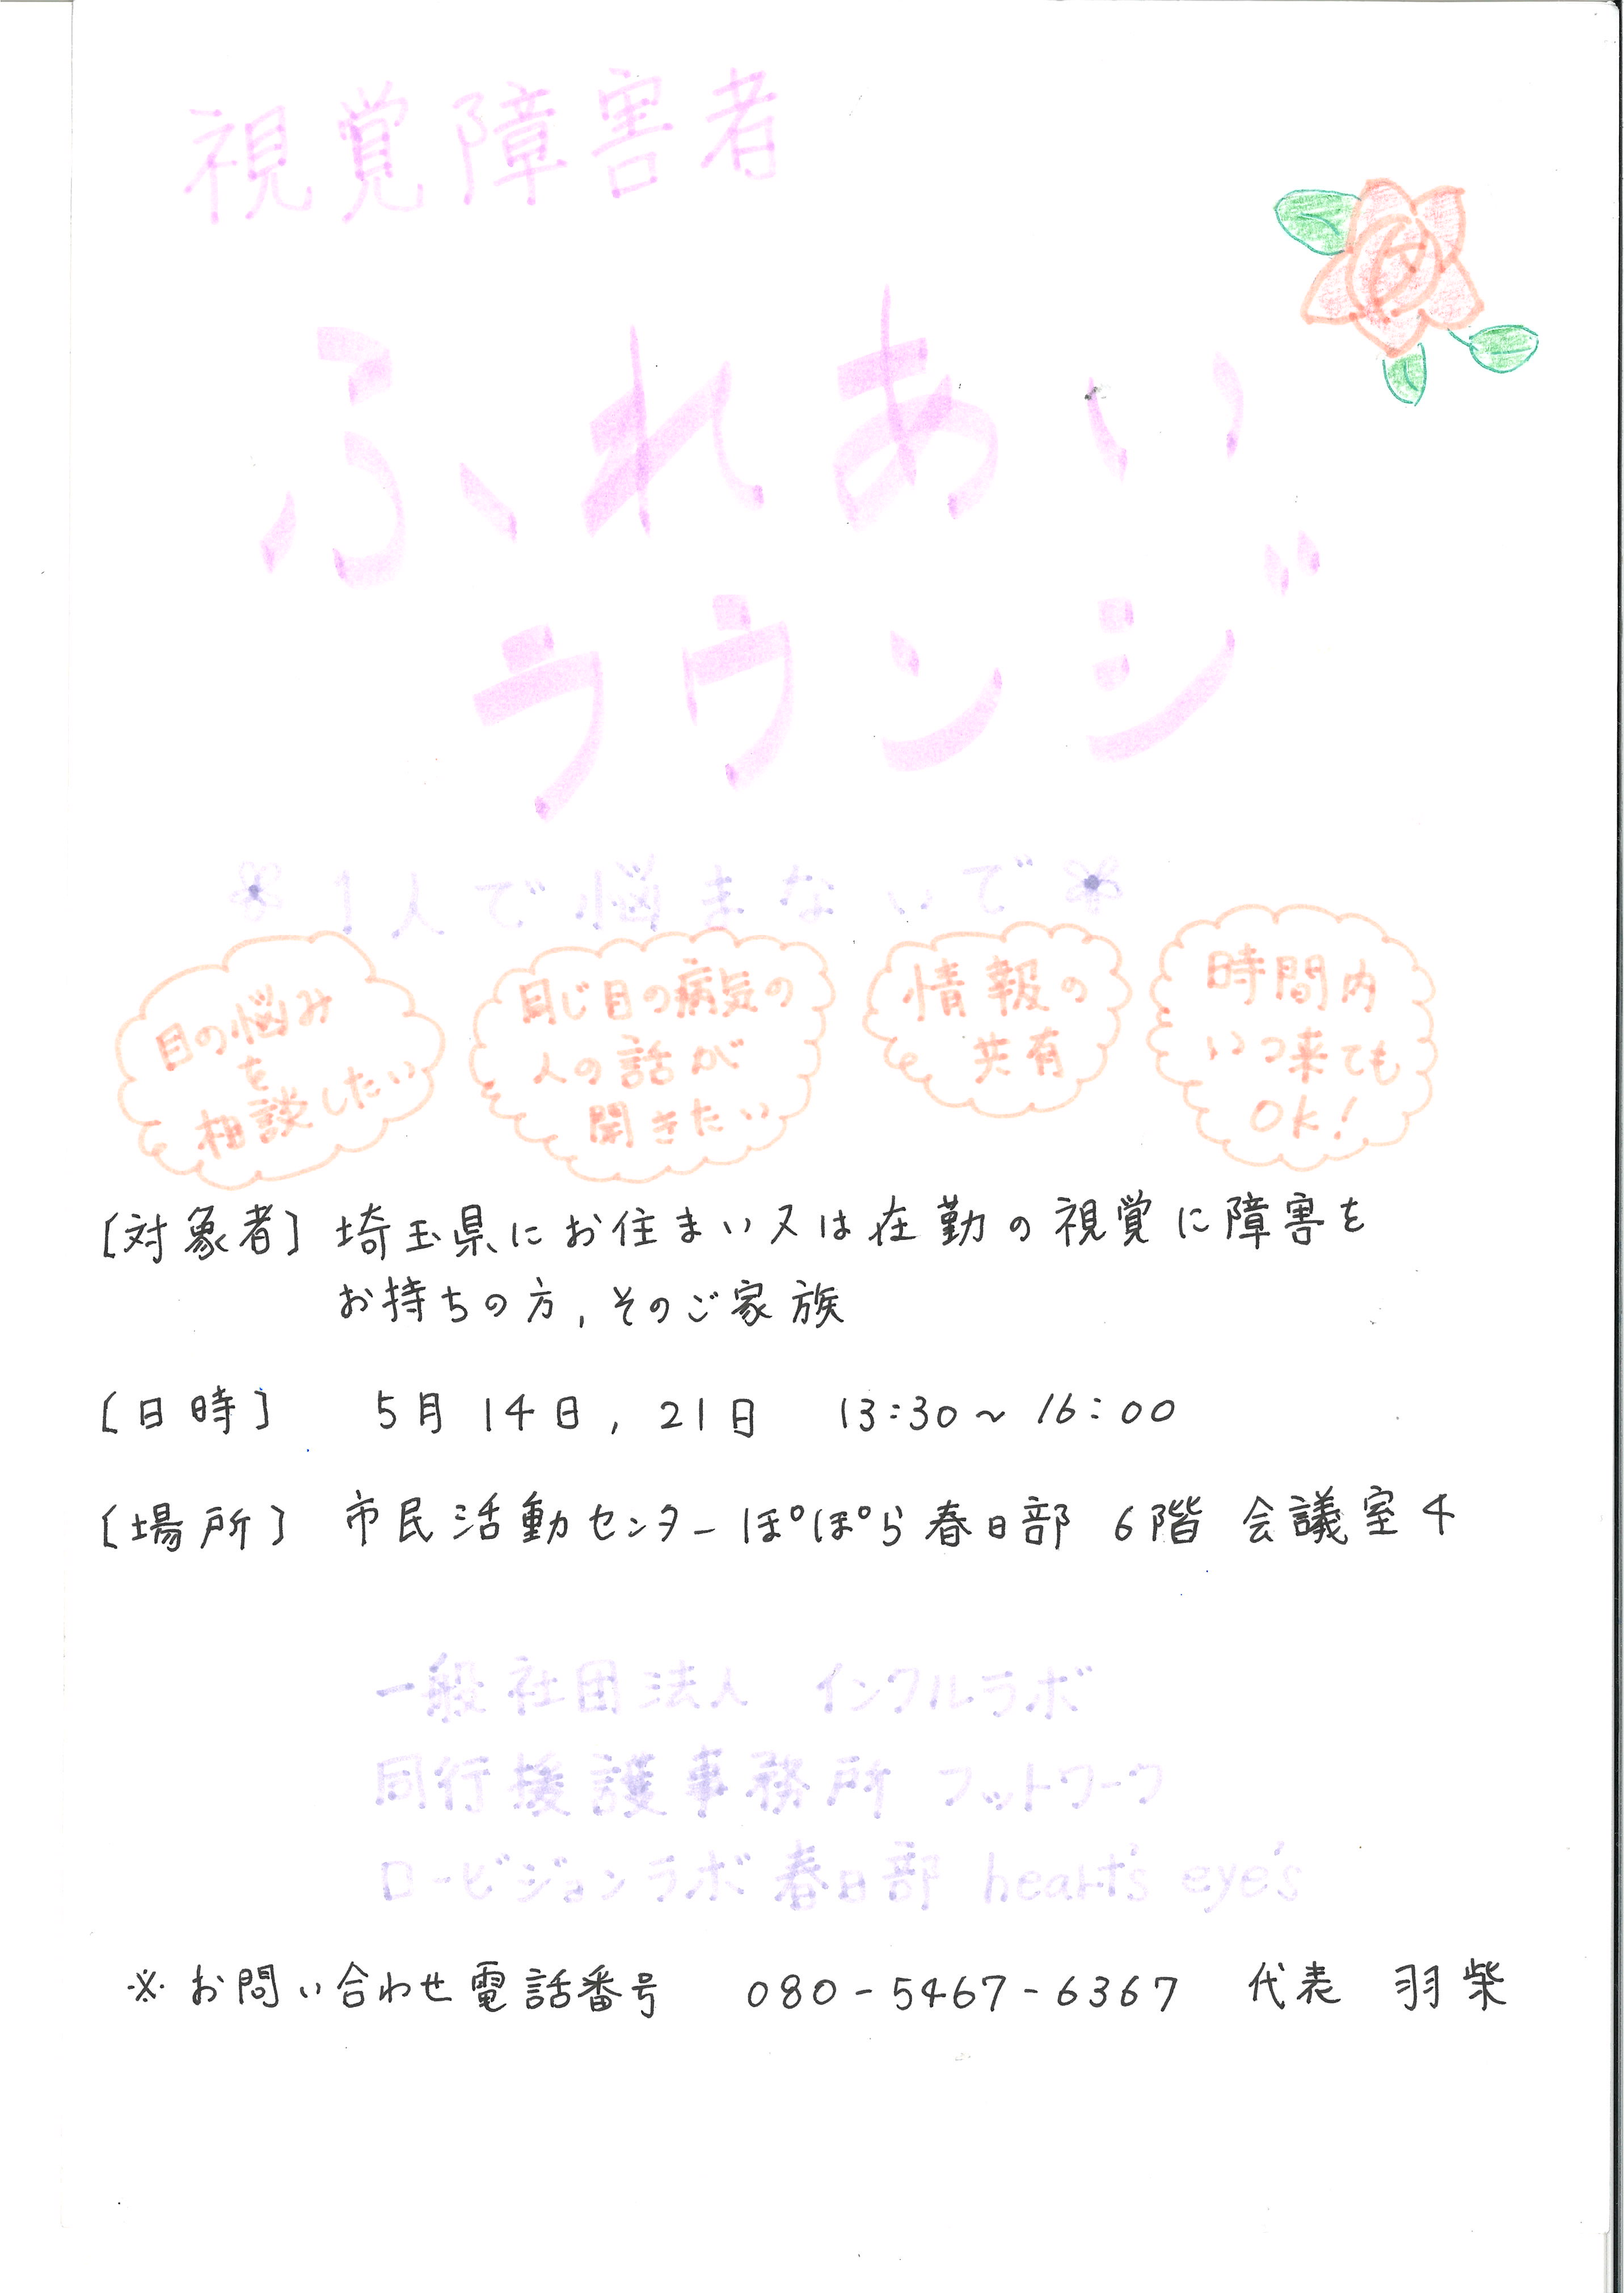 視覚障害者
ふれあい
ラウンジ
1人で悩まないで
目の悩み
を
相談したい
同じ目の病気の
人の話が
聞きたい
情報の
共有
時間内
いつ来ても
OK!
[対象者] 埼玉県にお住まい又は在勤の視覚に障害を
お持ちの方,そのご家族
[日時] 5月14日,21日 13:30~16:00
[場所] 市民活動センターぽぽら春日部 6階 会議室4
一般社団法人 インクルラボ
同行援護事務所 フットワーク
ロービジョンラボ春日部 heart's eye's
※お問い合わせ電話番号 080-5467-6367 代表 羽柴